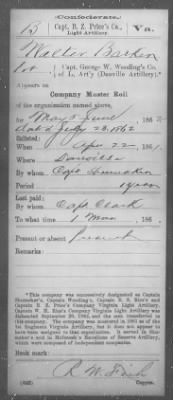 (Confederate.)
B Capt. B. Z. Price's Co., Va.
Light Artillery.
Walter Barker
Pvt, Capt. George W. Wooding's Co.
of L. Art'y (Danville Artillery).*
Appears on
Company Muster Roll
of the organization named above,
for May & June 186
dated July 23, 1862
Enlisted:
When Apr 22, 1861.
Where Danville
By whom Capt. Shumaker
Period 1 year
Last paid:
By whom Capt. Clark
To what time 1 Mar 186
Present or absent Present
Remarks:
*This company was successively designated as Captain
Shumaker's, Captain Wooding's, Captain
and Captain B. Z. Price's Company Virginia Light Artillery.
Captain W. H. Rice's Company Virginia Light Artillery was
Book mark:
(642)
Copyist.